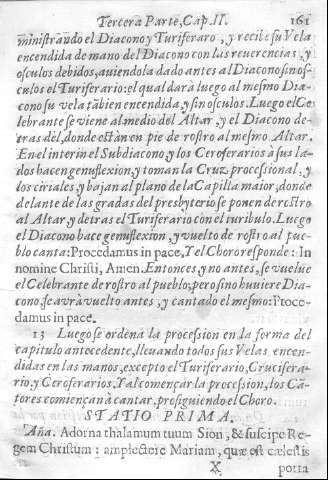 Tercera Parte, Cap. II. 161
ministrando el Diacono y Turiferaro, y recibe su Vela
encendida de mano del Diacono con las reuerencias, y
osculos debidos, auiendola dado antes al Diacono sin os-
culos el Turiferario: el qual darà luego al mesmo Dia-
cono su vela tãbien encendida y sin osculos. Luego el Ce
lebrante se viene al medio del Altar, y el Diacono de-
tras del, donde estàn en pie de rostro al mesmo Altar.
En el interin el Subdiacono, y los Ceroferarios à sus la-
dos hacen genuflexion, y toman la Cruz processional, y
los ciriales y bajan al plano de la Capilla maior, donde
delante de las gradas del presbyterio se ponen de rostro
al Altar, y detras el Turiferario con el turibulo. Luego
el Diacono hace genuflexion, y vuelto de rostro al pue-
blo canta: Procedamus in pace, Y el Choro responde: In
nomine Christi, Amen. Entonces, y no antes, se vuelue
el Celebrante de rostro al pueblo; pero si no huuiere Dia-
cono, se avrà vuelto antes, y cantado el mesmo: Proce-
damus in pace.
13 Luego se ordena la procession en la forma del
capitulo antecedente, lleuando todos sus Velas encen-
didas en las manos, excepto el Turiferario, Crucifera-
rio, y Ceroferarios. Y al començar la procession, los Cã-
tores comiençan à cantar, prosiguiendo el Choro.
STATIO PRIMA.
Aña. Adorna thalamum tuum Sion, & suscipe Re-
gem Christum: amplectere Mariam, quæ est cælestis
X porta